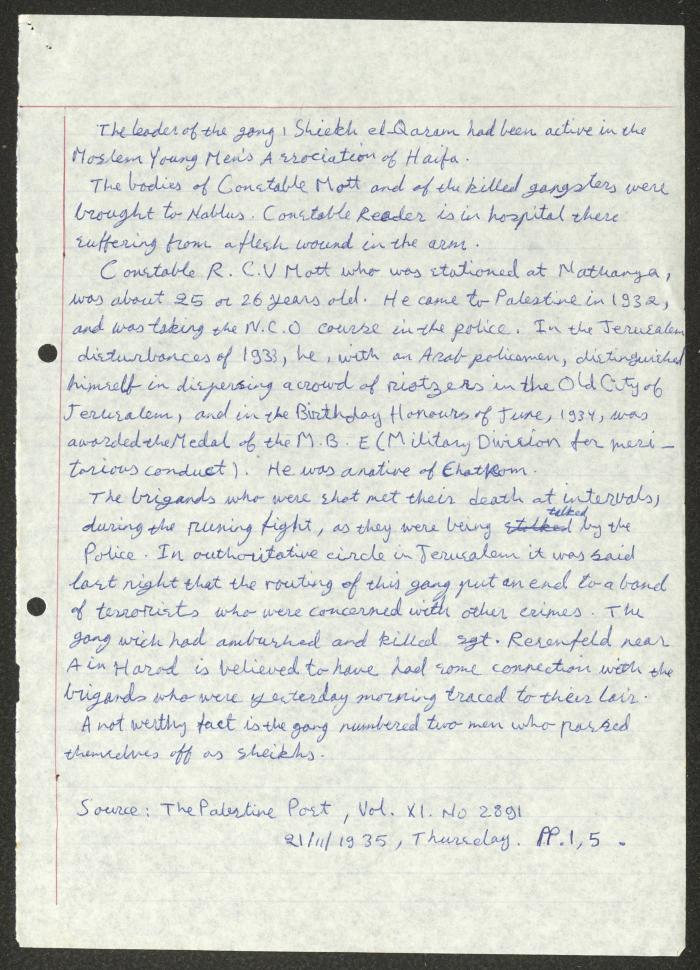 The leader of the gang, Shiekh el-Qaram had been active in the
Moslem Young Men's Association of Haifa.
The bodies of Constable Mott and of the killed gangsters were
brought to Nablus. Constable Reader is in hospital there
suffering from a flesh wound in the arm.
Constable R. C.V Mott who was stationed at Nathanya,
was about 25 or 26 years old. He came to Palestine in 1932,
and was taking the N.C.O course in the police. In the Jerusalem
disturbances of 1933, he, with an Arab policemen, distinguished
himself in dispersing a crowd of riotzers in the Old City of
Jerusalem, and in the Birthday Honours of June, 1934, was
awarded the Medal of the M. B. E (Military Division for meri-
torious conduct). He was a native of Chatkom.
The brigands who were shot met their death at intervals,
during the runing fight, as they were being stalked talked by the
Police. In authoritative circle in Jerusalem it was said
last night that the routing of this gang put an end to a band
of terrorists who were concerned with other crimes. The
gang wich had ambushed and killed sgt. Resenfeld near
Ain Harod is believed to have had some connection with the
brigands who were yesterday morning traced to their lair.
A not worthy fact is the gang numbered two men who passed
themselves off as sheikhs.
Source: The Palestine Post, Vol. XI. No 2891
21/11/1935, Thursday. PP.1,5.